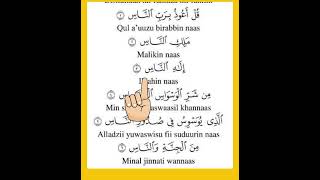 قُلْ أَعُوذُ بِرَبِّ النَّاسِ ۝١
Qul a'uuzu birabbin naas
مَلِكِ النَّاسِ ۝٢
Malikin naas
إِلٰهِ النَّاسِ ۝٣
Ilaahin naas
مِن شَرِّ الْوَسْوَاسِ الْخَنَّاسِ ۝٤
Min khannaas
الَّذِي يُوَسْوِسُ فِي صُدُورِ النَّاسِ ۝٥
Alladzii yuwaswisu fii suduurin naas
مِنَ الْجِنَّةِ وَالنَّاسِ ۝٦
Minal jinnati wannaas